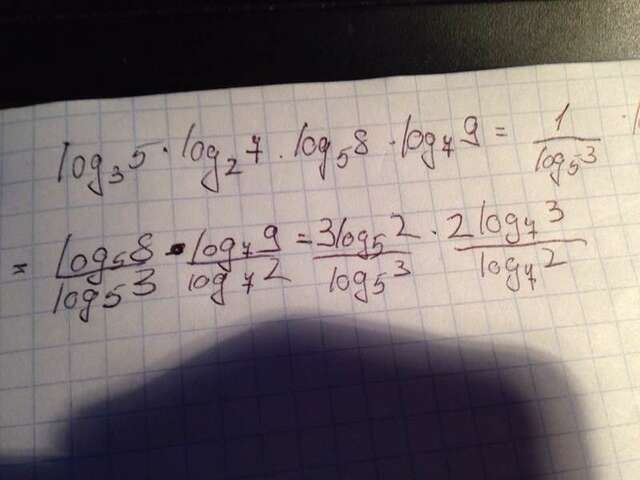 log₃5 · log₂7 · log₅8 · log₇9 = 1/log₅3 ·
= log₅8/log₅3 · log₇9/log₇2 = 3log₅2/log₅3 · 2log₇3/log₇2